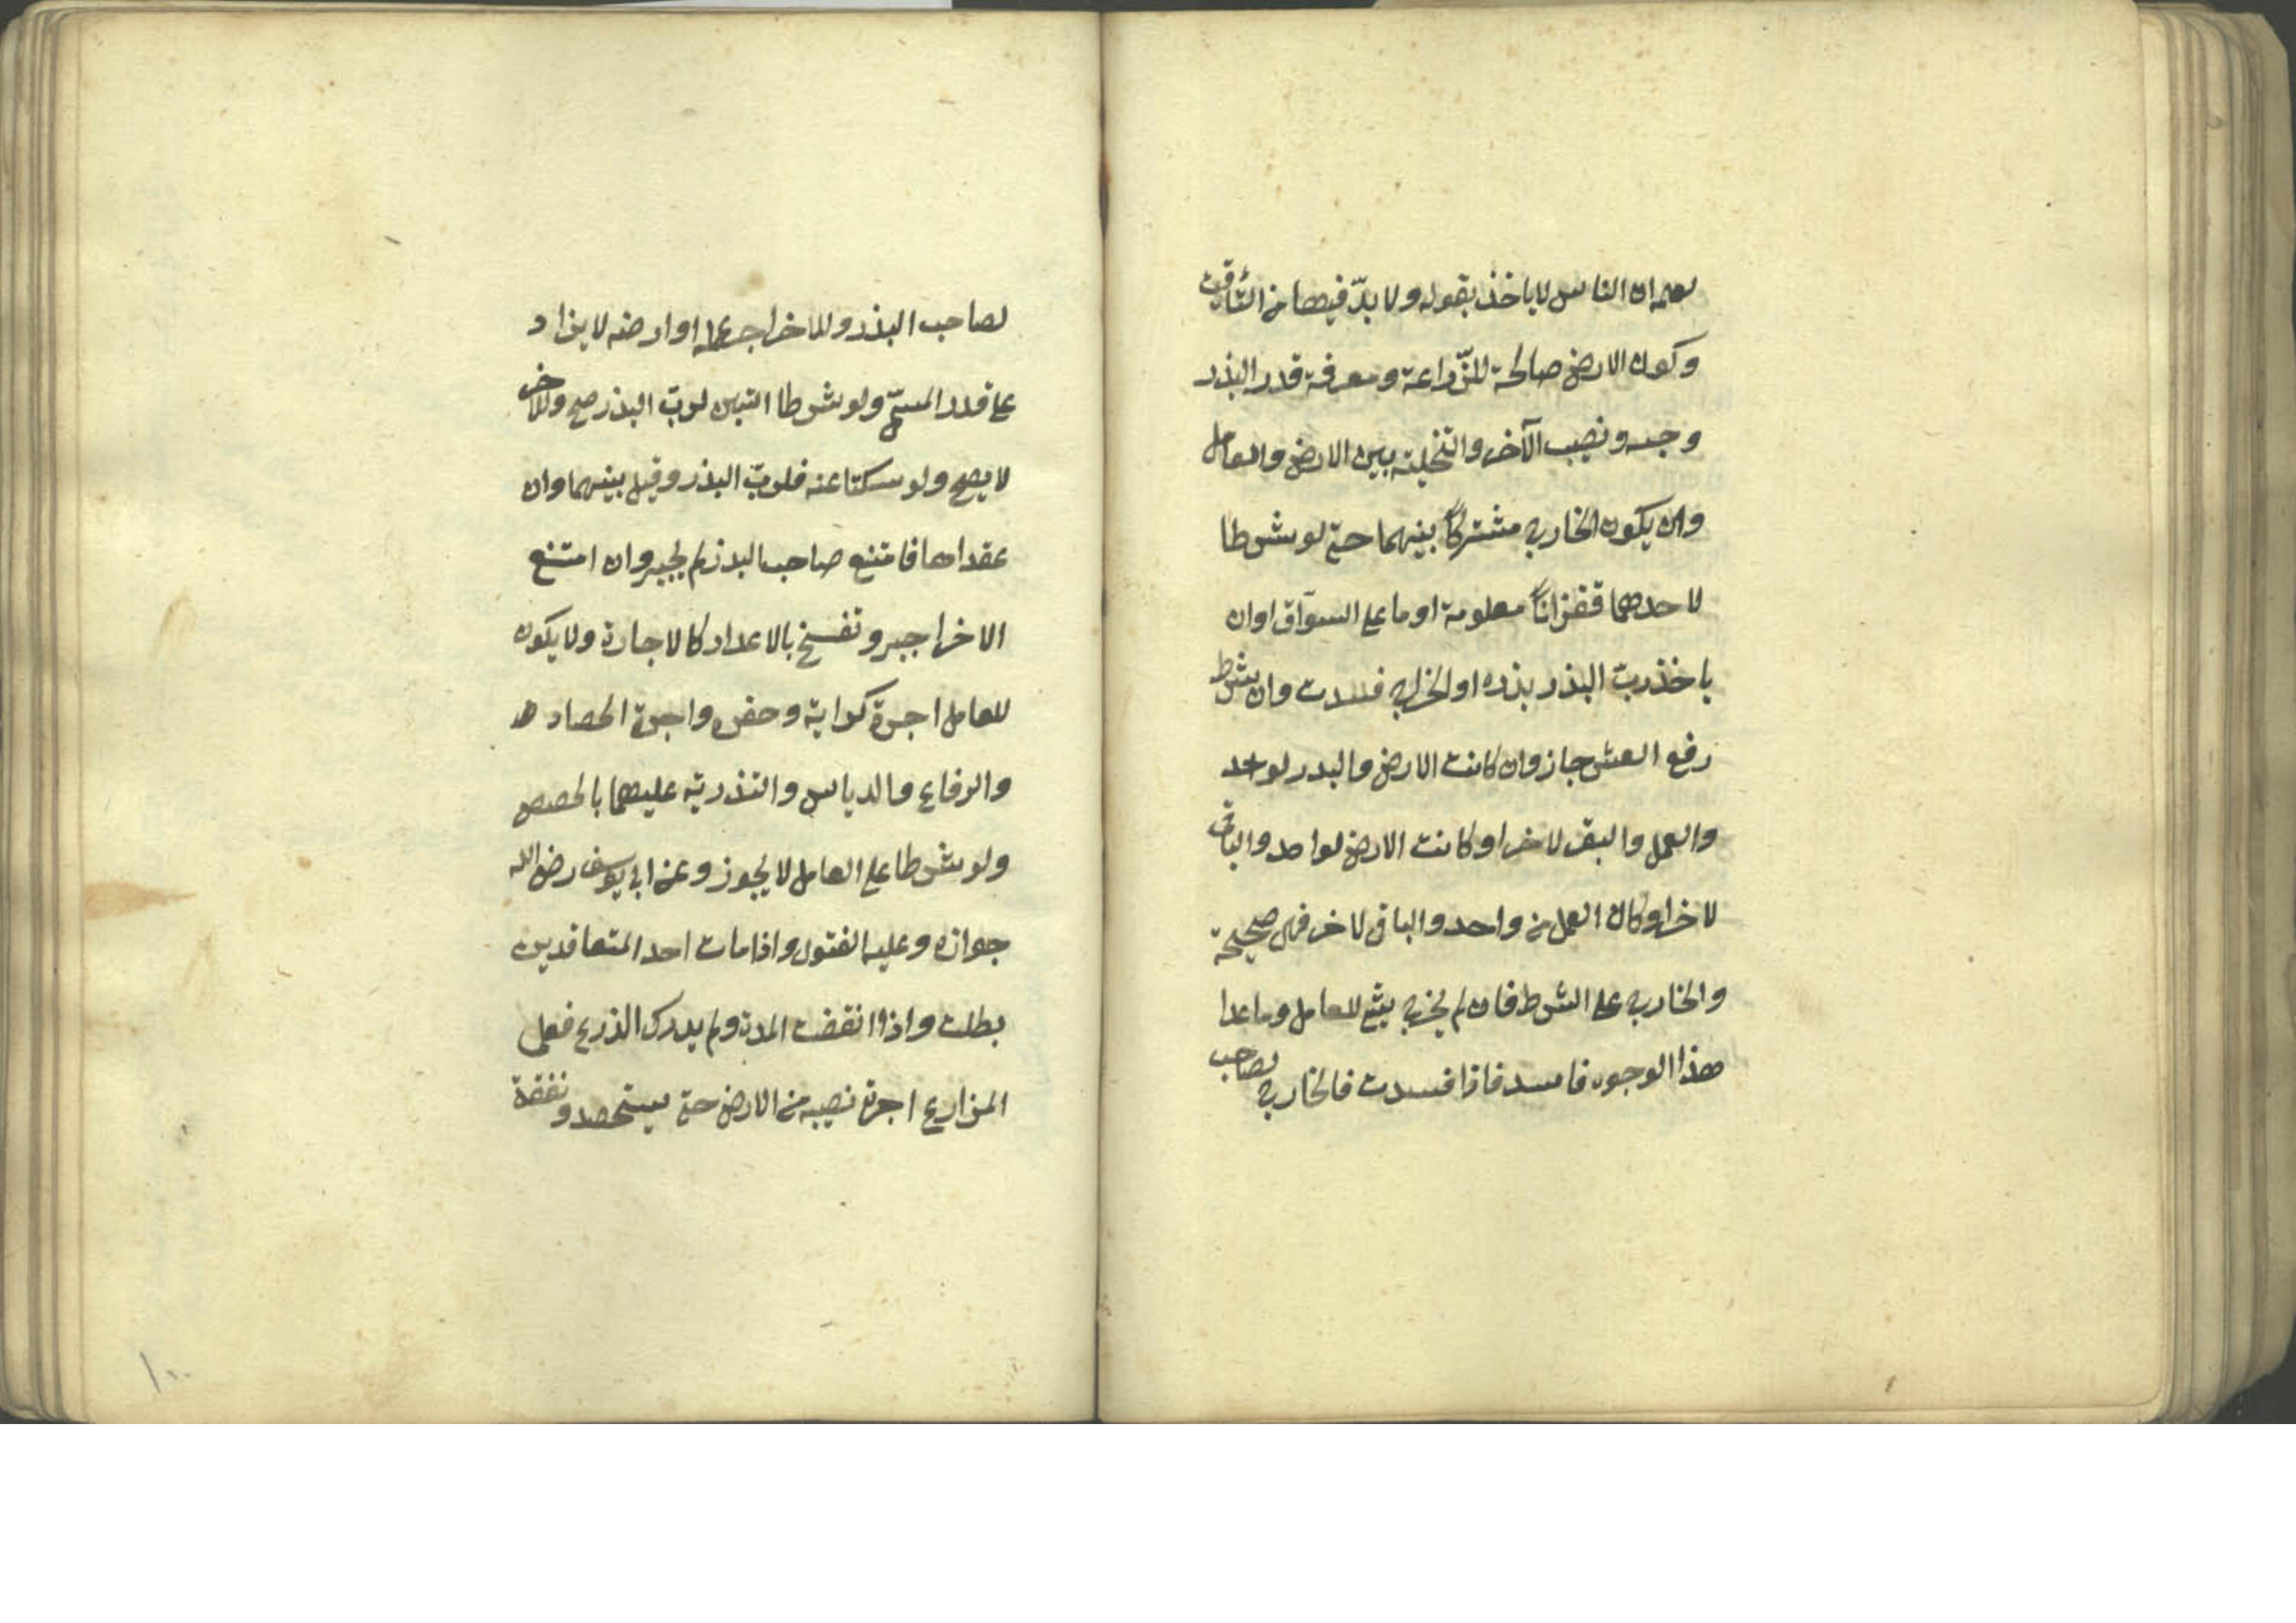 لعلمه ان الناس لا ياخذ بقوله ولا بدّ فيها من التأقيت
وكون الارض صالحة للزّراعة ومعرفة قدر البذر
وجنسه ونصيب الآخر والتخلية بين الارض والعامل
وان يكون الخارج مشتركاً بينهما حتى لو شرطا
لاحدهما قفزاناً معلومة او ما على السواق او ان
ياخذ ربّ البذر بذره او الخراج فسدت وان شرط
رفع العشر جاز وان كانت الارض والبذر لواحد
والعمل والبقر لاخر او كانت الارض لواحد والباقى
لاخر او كان العمل من واحد والباقى لاخر فهى صحيحة
والخارج على الشرط فان لم يخرج شئ للعامل وما عدا
هذا الوجوه فاسد فاذا فسدت فالخارج لصاحب
لصاحب البذر وللاخر اجر عمله او ارضه لا يزاد
على قدر المسمّى ولو شرطا التبن لربّ البذر صح وللاخر
لا يصح ولو سكتا عنه فلربّ البذر وقيل بينهما وان
عقداها فامتنع صاحب البذر لم يجبر وان امتنع
الاخر اجبر وتفسخ بالاعذار كالاجارة ولا يكون
للعامل اجرة كرابة وحفر واجرة الحصاد
والرفاع والدياس والتذرية عليهما بالحصص
ولو شرطا على العامل لا يجوز وعن ابى يوسف رضى الله
جوازه وعليه الفتوى واذا مات احد المتعاقدين
بطلت واذا انقضت المدة ولم يدرك الذرع فعلى
المزارع اجرة نصيبه من الارض حتى يستحصد ونفقة
١٠٠